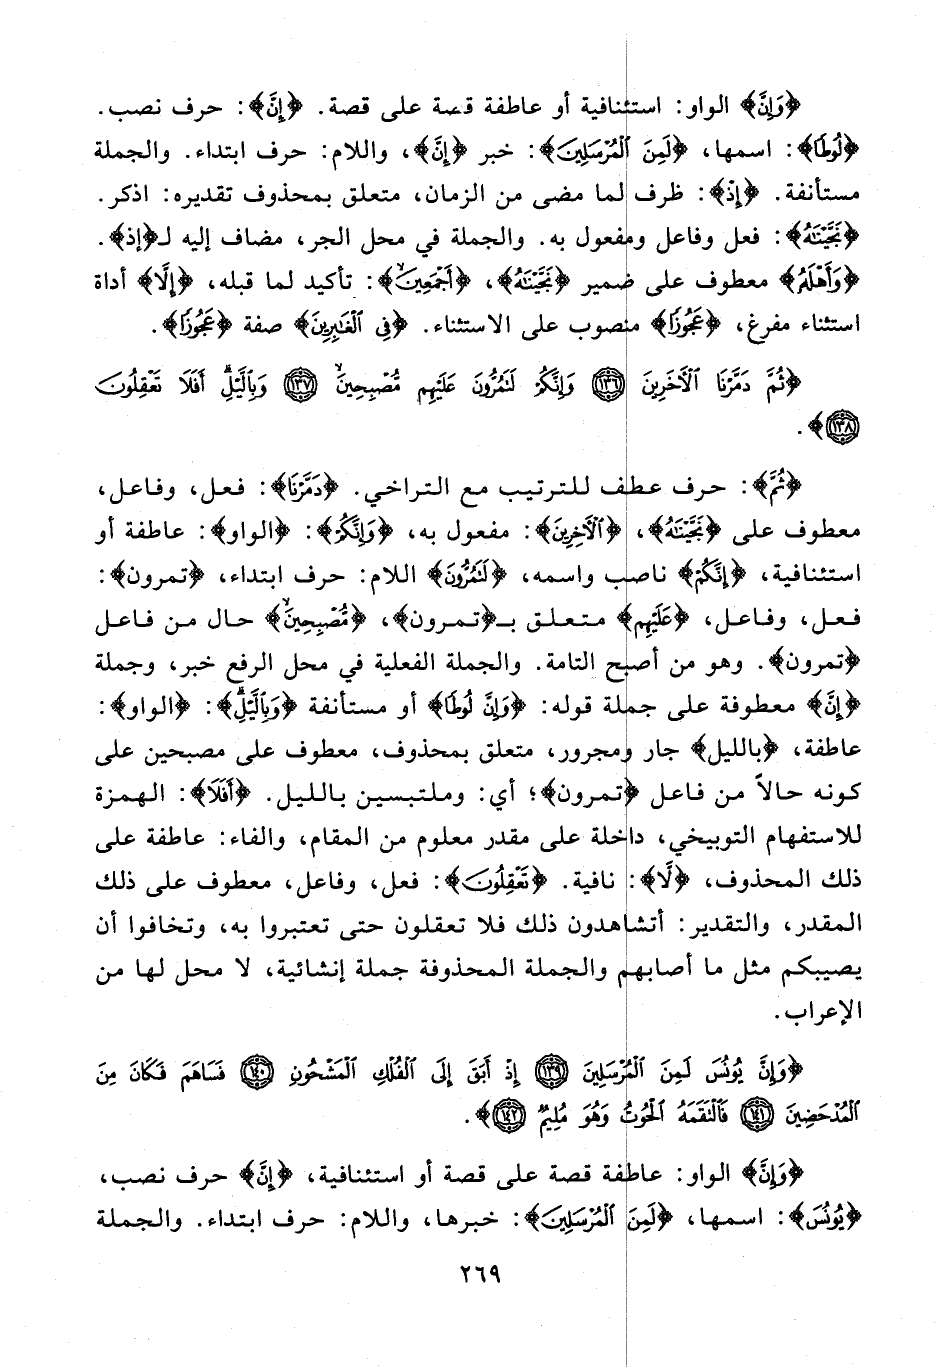 ﴿وَإِنَّ﴾ الواو: استئنافية أو عاطفة قصة على قصة. ﴿إِنَّ﴾: حرف نصب.
﴿لُوطًا﴾: اسمها، ﴿لَمِنَ الْمُرْسَلِينَ﴾: خبر ﴿إِنَّ﴾، واللام: حرف ابتداء. والجملة
مستأنفة. ﴿إِذْ﴾: ظرف لما مضى من الزمان، متعلق بمحذوف تقديره: اذكر.
﴿نَجَّيْنَاهُ﴾: فعل وفاعل ومفعول به. والجملة في محل الجر، مضاف إليه لـ﴿إذ﴾.
﴿وَأَهْلَهُ﴾ معطوف على ضمير ﴿نَجَّيْنَاهُ﴾، ﴿أَجْمَعِينَ﴾: تأكيد لما قبله، ﴿إِلَّا﴾ أداة
استثناء مفرغ، ﴿عَجُوزًا﴾ منصوب على الاستثناء. ﴿فِي الْغَابِرِينَ﴾ صفة ﴿عَجُوزًا﴾.
﴿ثُمَّ دَمَّرْنَا الْآخَرِينَ ١٣٦ وَإِنَّكُمْ لَتَمُرُّونَ عَلَيْهِم مُّصْبِحِينَ ١٣٧ وَبِاللَّيْلِ أَفَلَا تَعْقِلُونَ
١٣٨﴾.
﴿ثُمَّ﴾: حرف عطف للترتيب مع التراخي. ﴿دَمَّرْنَا﴾: فعل، وفاعل،
معطوف على ﴿نَجَّيْنَاهُ﴾، ﴿الْآخَرِينَ﴾: مفعول به، ﴿وَإِنَّكُمْ﴾: ﴿الواو﴾: عاطفة أو
استئنافية، ﴿إِنَّكُمْ﴾ ناصب واسمه، ﴿لَتَمُرُّونَ﴾ اللام: حرف ابتداء، ﴿تمرون﴾:
فعل، وفاعل، ﴿عَلَيْهِم﴾ متعلق بـ﴿تمرون﴾، ﴿مُّصْبِحِينَ﴾ حال من فاعل
﴿تمرون﴾. وهو من أصبح التامة. والجملة الفعلية في محل الرفع خبر، وجملة
﴿إِنَّ﴾ معطوفة على جملة قوله: ﴿وَإِنَّ لُوطًا﴾ أو مستأنفة ﴿وَبِاللَّيْلِ﴾: ﴿الواو﴾:
عاطفة، ﴿بالليل﴾ جار ومجرور، متعلق بمحذوف، معطوف على مصبحين على
كونه حالاً من فاعل ﴿تمرون﴾؛ أي: وملتبسين بالليل. ﴿أَفَلَا﴾: الهمزة
للاستفهام التوبيخي، داخلة على مقدر معلوم من المقام، والفاء: عاطفة على
ذلك المحذوف، ﴿لَّا﴾: نافية. ﴿تَعْقِلُونَ﴾: فعل، وفاعل، معطوف على ذلك
المقدر، والتقدير: أتشاهدون ذلك فلا تعقلون حتى تعتبروا به، وتخافوا أن
يصيبكم مثل ما أصابهم والجملة المحذوفة جملة إنشائية، لا محل لها من
الإعراب.
﴿وَإِنَّ يُونُسَ لَمِنَ الْمُرْسَلِينَ ١٣٩ إِذْ أَبَقَ إِلَى الْفُلْكِ الْمَشْحُونِ ١٤٠ فَسَاهَمَ فَكَانَ مِنَ
الْمُدْحَضِينَ ١٤١ فَالْتَقَمَهُ الْحُوتُ وَهُوَ مُلِيمٌ ١٤٢﴾.
﴿وَإِنَّ﴾ الواو: عاطفة قصة على قصة أو استئنافية، ﴿إِنَّ﴾ حرف نصب،
﴿يُونُسَ﴾: اسمها، ﴿لَمِنَ الْمُرْسَلِينَ﴾: خبرها، واللام: حرف ابتداء. والجملة
٢٦٩